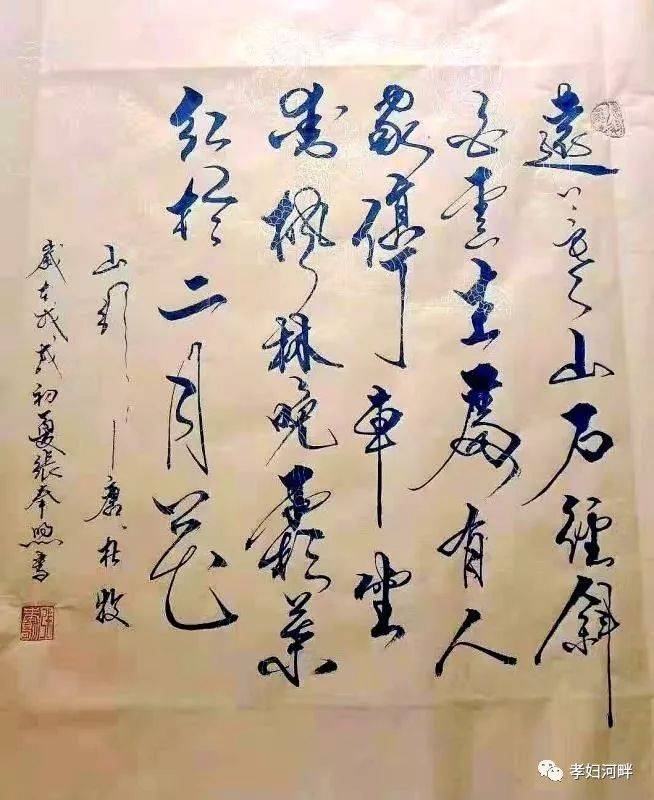 遠上寒山石徑斜
白雲生處有人
家停車坐
愛楓林晚霜葉
紅於二月花
山行 唐 杜牧
歲在戊戌初夏張奉書
孝妇河畔